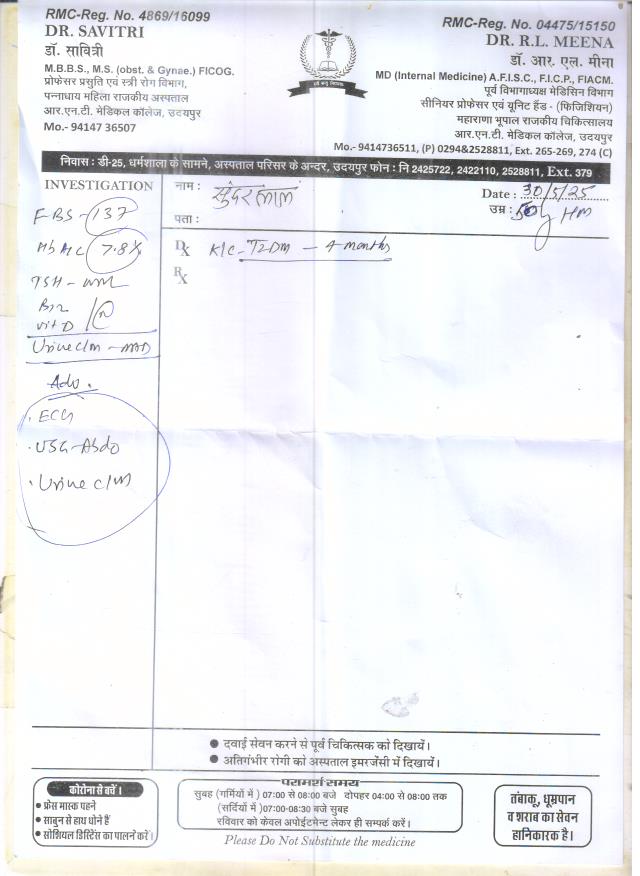 RMC-Reg. No. 4869/16099
DR. SAVITRI
डॉ. सावित्री
M.B.B.S., M.S. (obst. & Gynae.) FICOG.
प्रोफेसर प्रसुति एवं स्त्री रोग विभाग,
पन्नाधाय महिला राजकीय अस्पताल
आर.एन.टी. मेडिकल कॉलेज, उदयपुर
Mo.- 94147 36507
RMC-Reg. No. 04475/15150
DR. R.L. MEENA
डॉ. आर. एल. मीना
MD (Internal Medicine) A.F.I.S.C., F.I.C.P., FIACM.
पूर्व विभागाध्यक्ष मेडिसिन विभाग
सीनियर प्रोफेसर एवं यूनिट हैड - (फिजिशियन)
महाराणा भूपाल राजकीय चिकित्सालय
आर.एन.टी. मेडिकल कॉलेज, उदयपुर
Mo.- 9414736511, (P) 0294&2528811, Ext. 265-269, 274 (C)
निवास : डी-25, धर्मशाला के सामने, अस्पताल परिसर के अन्दर, उदयपुर फोन : नि 2425722, 2422110, 2528811, Ext. 379
INVESTIGATION
FBS - 137
HbA1C 7.8%
TSH -
B12
vit D
Urine c/m - NAD
Adv.
. ECG
. USG-Abdo
. Urine c/m
नाम : सुंदरलाल
Date : 30/5/25
पता :
उम्र : 50y
Dx K/C - T2DM - 4 months
Rx
● दवाई सेवन करने से पूर्व चिकित्सक को दिखायें।
● अतिगंभीर रोगी को अस्पताल इमरजेंसी में दिखायें।
कोरोना से बचें।
● फ्रेस मास्क पहने
● साबुन से हाथ धोने हैं
● सोशियल डिस्टिेंस का पालन करें।
परामर्श समय
सुबह (गर्मियों में ) 07:00 से 08:00 बजे दोपहर 04:00 से 08:00 तक
(सर्दियों में )07:00-08:30 बजे सुबह
रविवार को केवल अपोईटमेन्ट लेकर ही सम्पर्क करें।
Please Do Not Substitute the medicine
तंबाकू, धूम्रपान
व शराब का सेवन
हानिकारक है।